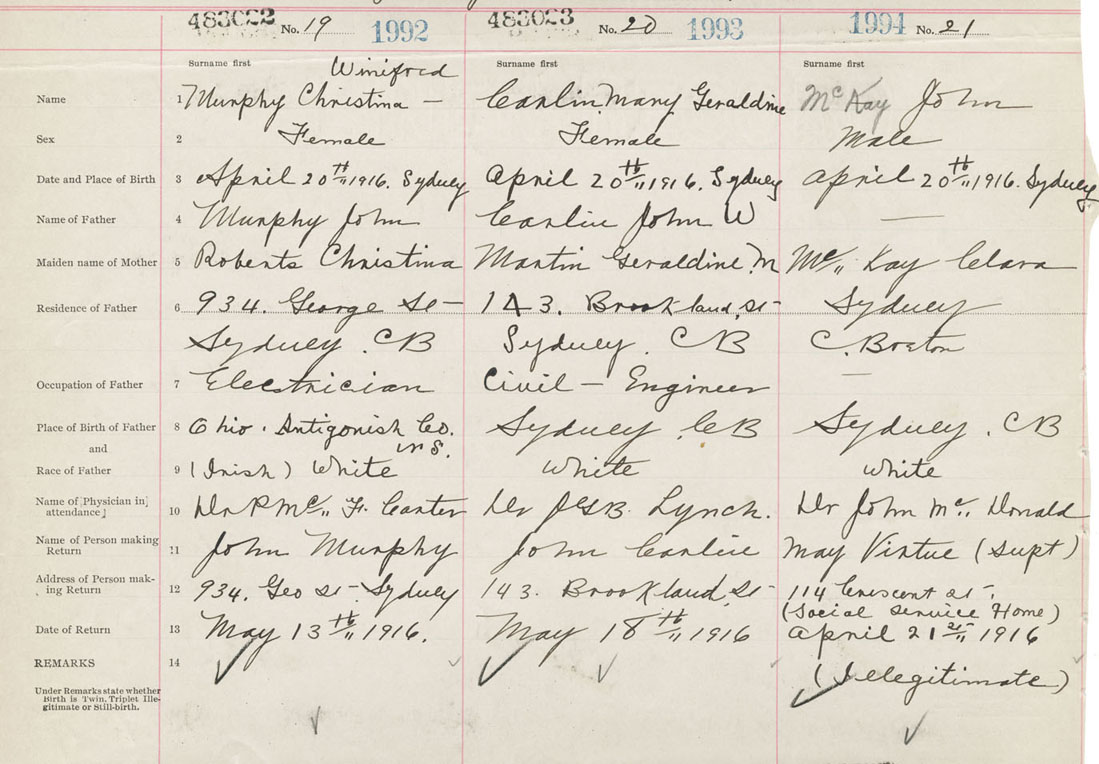 483022 No. 19 1992 483023 No. 20 1993 1994 No. 21
Surname first Winifred Surname first Surname first
Name 1 Murphy Christina — Carlin Mary Geraldine McKay John
Sex 2 Female Female Male
Date and Place of Birth 3 April 20th 1916. Sydney April 20th 1916. Sydney April 20th 1916. Sydney
Name of Father 4 Murphy John Carlin John W —
Maiden name of Mother 5 Roberts Christina Martin Geraldine M Mc Kay Clara
Residence of Father 6 934. George St 143. Brookland St Sydney
Sydney. CB Sydney. CB C. Breton
Occupation of Father 7 Electrician Civil — Engineer —
Place of Birth of Father 8 Ohio. Antigonish Co. Sydney CB Sydney. CB
and N S.
Race of Father 9 (Irish) White White White
Name of Physician in
attendance 10 Dr P Mc F. Carter Dr J G B. Lynch. Dr John Mc Donald
Name of Person making
Return 11 John Murphy John Carlin May Virtue (Supt)
Address of Person mak-
ing Return 12 934. Geo St - Sydney 143. Brookland St 114 Crescent St
(Social Service Home)
Date of Return 13 May 13th 1916. May 18th 1916 April 21st 1916
REMARKS 14 (Illegitimate)
Under Remarks state whether
Birth is Twin, Triplet Ille-
gitimate or Still-birth.